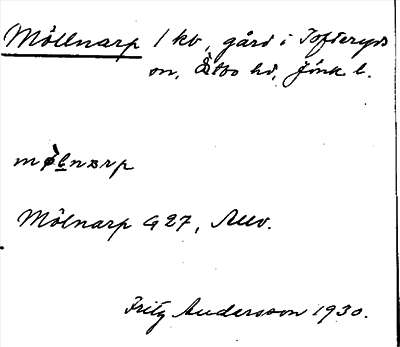 Möllnarp 1 kv, gård i Tofteryds
sn, Östbo hd, Jönk l.
Mölnarp G 27,
Fritz Andersson 1930.